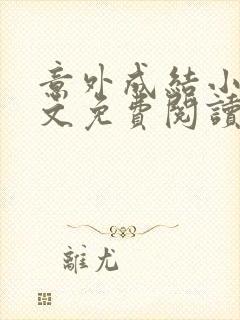 意外成結小
文免費閱讀
離尤